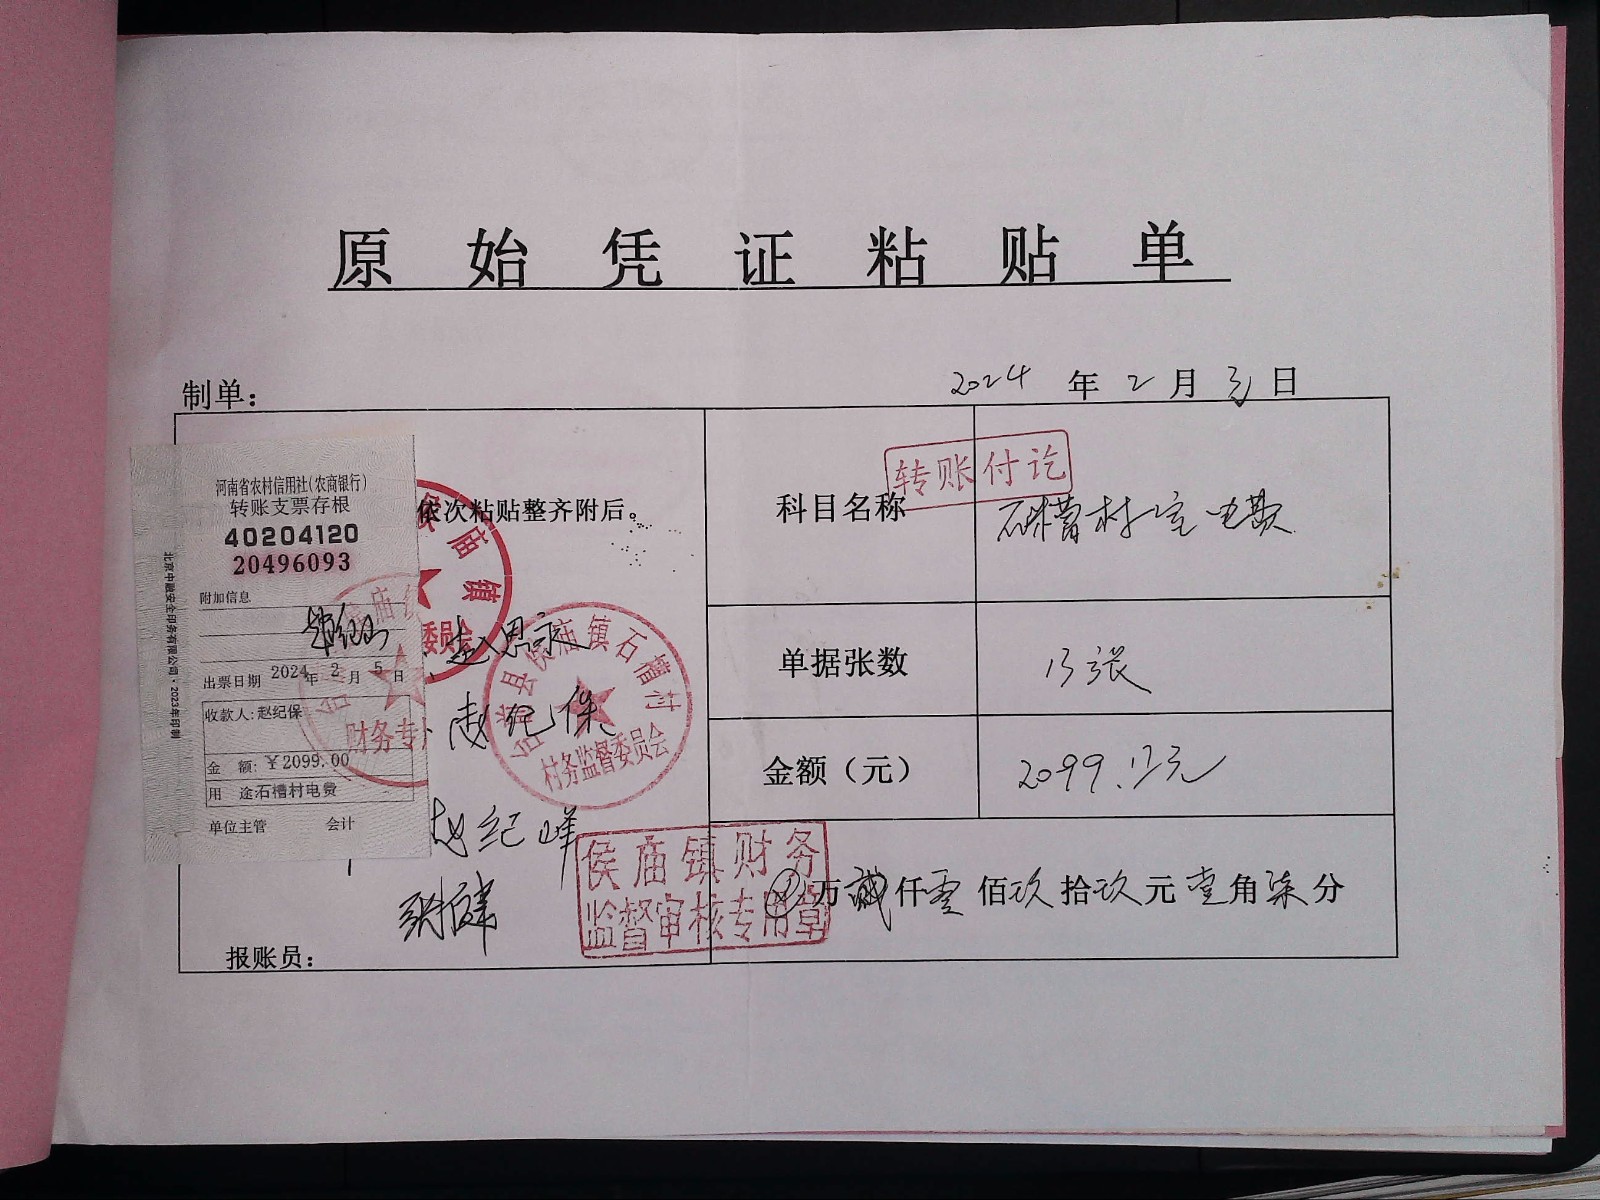 原始凭证粘贴单
制单：
2024年2月日
河南省农村信用社(农商银行)
转账支票存根
40204120
20496093
附加信息
出票日期 2024年2月5日
收款人:赵纪保
金额:￥2099.00
用途石槽村电费
单位主管 会计
北京中融安全印务有限公司·2023年印制
依次粘贴整齐附后。
庙镇
委员会
财务专
赵思永
赵纪保
赵纪峰
台前县侯庙镇石槽村
村务监督委员会
侯庙镇财务
监督审核专用章
报账员：
科目名称
转账付讫
石槽村室电费
单据张数
13张
金额（元）
2099.17元
万贰仟零佰玖拾玖元壹角柒分